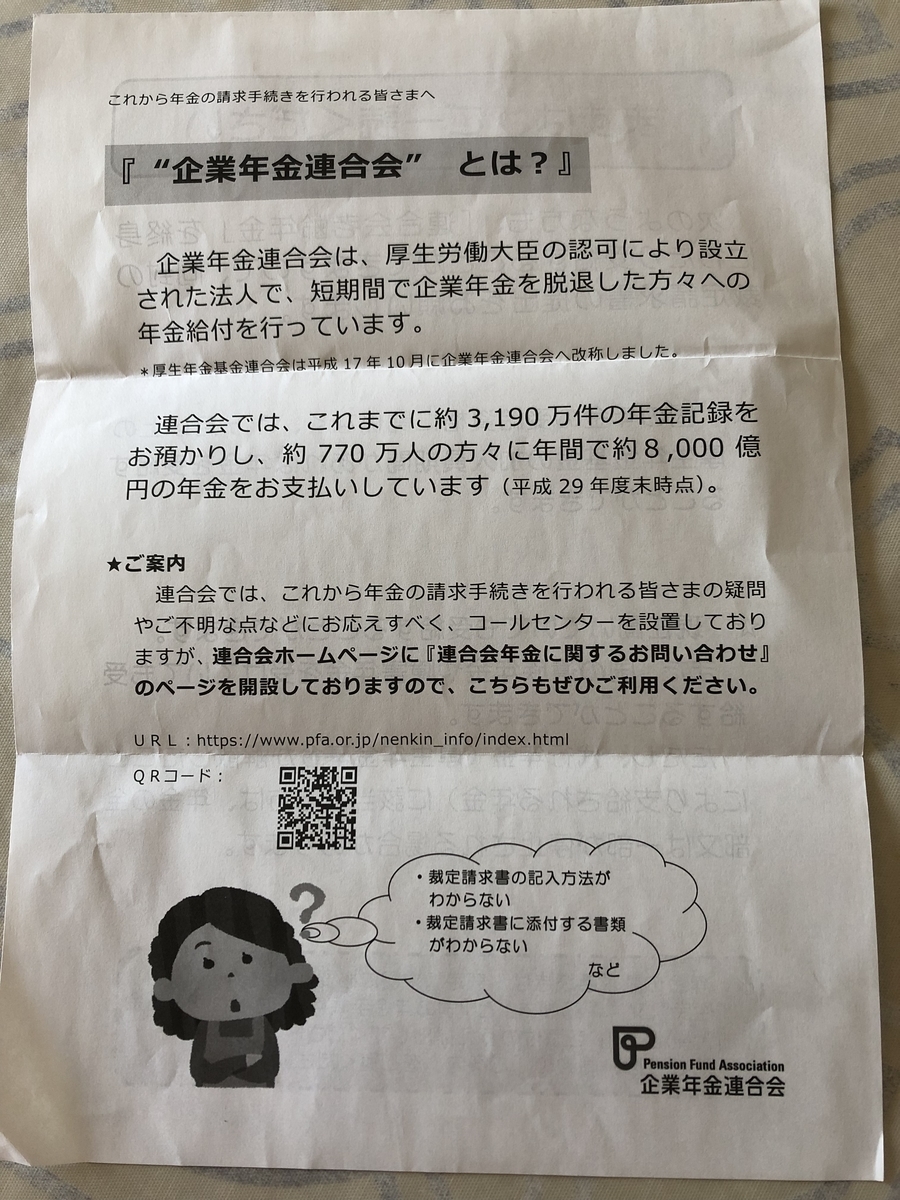 これから年金の請求手続きを行われる皆さまへ
『 “企業年金連合会” とは？』
企業年金連合会は、厚生労働大臣の認可により設立
された法人で、短期間で企業年金を脱退した方々への
年金給付を行っています。
＊厚生年金基金連合会は平成 17 年 10 月に企業年金連合会へ改称しました。
連合会では、これまでに約 3,190 万件の年金記録を
お預かりし、約 770 万人の方々に年間で約８,000 億
円の年金をお支払いしています（平成 29 年度末時点）。
★ご案内
連合会では、これから年金の請求手続きを行われる皆さまの疑問
やご不明な点などにお応えすべく、コールセンターを設置しており
ますが、連合会ホームページに『連合会年金に関するお問い合わせ』
のページを開設しておりますので、こちらもぜひご利用ください。
ＵＲＬ：https://www.pfa.or.jp/nenkin_info/index.html
ＱＲコード：
？
・裁定請求書の記入方法が
わからない
・裁定請求書に添付する書類
がわからない
など
Pension Fund Association
企業年金連合会